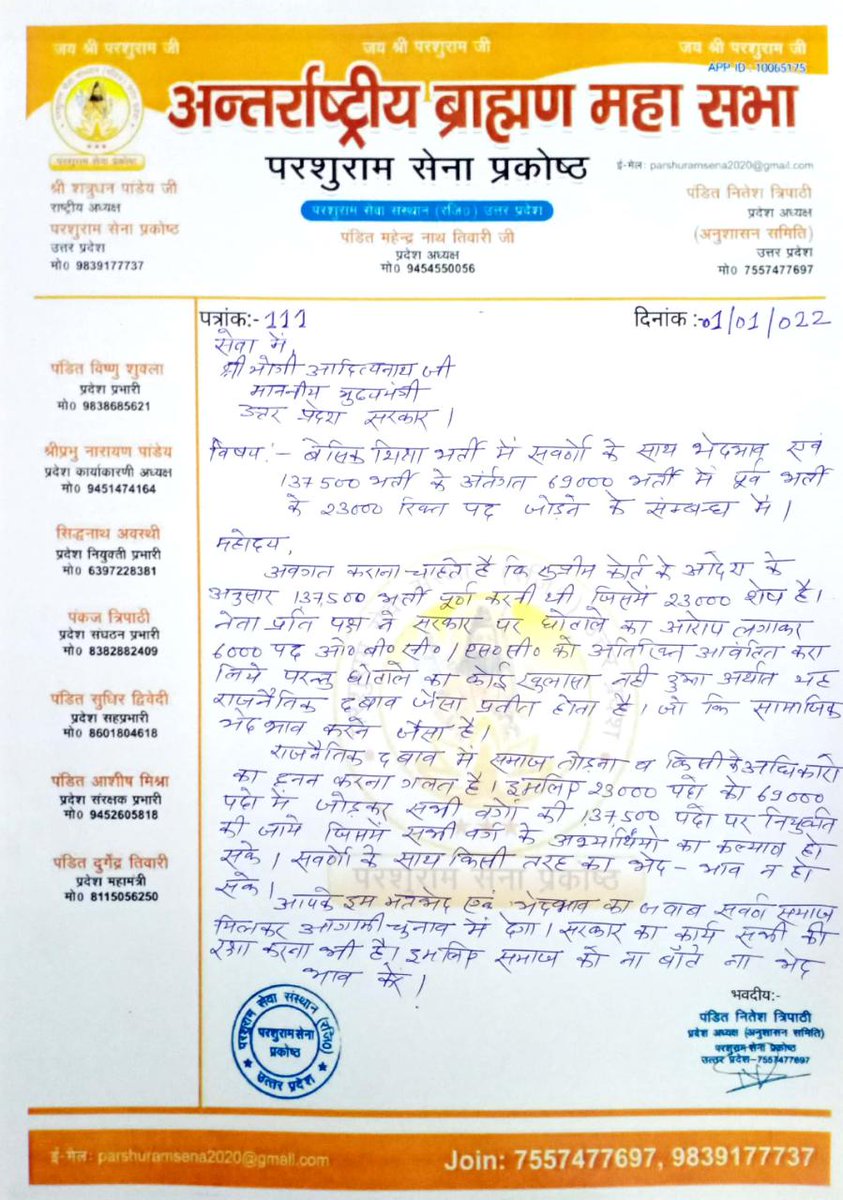 जय श्री परशुराम जी
जय श्री परशुराम जी
जय श्री परशुराम जी
APP ID - 10065175
अन्तर्राष्ट्रीय ब्राह्मण महा सभा
परशुराम सेना प्रकोष्ठ
ई-मेल: parshuramsena2020@gmail.com
परशुराम सेवा संस्थान (रजि०) उत्तर प्रदेश
श्री शत्रुधन पांडेय जी
राष्ट्रीय अध्यक्ष
परशुराम सेना प्रकोष्ठ
उत्तर प्रदेश
मो0 9839177737
पंडित महेन्द्र नाथ तिवारी जी
प्रदेश अध्यक्ष
मो0 9454550056
पंडित नितेश त्रिपाठी
प्रदेश अध्यक्ष
(अनुशासन समिति)
उत्तर प्रदेश
मो0 7557477697
पंडित विष्णु शुक्ला
प्रदेश प्रभारी
मो0 9838685621
श्रीप्रभु नारायण पांडेय
प्रदेश कार्याकारणी अध्यक्ष
मो0 9451474164
सिद्धनाथ अवस्थी
प्रदेश नियुक्ती प्रभारी
मो0 6397228381
पंकज त्रिपाठी
प्रदेश संघठन प्रभारी
मो0 8382882409
पंडित सुधिर द्विवेदी
प्रदेश सहप्रभारी
मो0 8601804618
पंडित आशीष मिश्रा
प्रदेश संरक्षक प्रभारी
मो0 9452605818
पंडित दुर्गेद्र तिवारी
प्रदेश महामत्री
मो0 8115056250
पत्रांक:- 111
दिनांक :- 01/01/022
सेवा में,
श्री योगी आदित्यनाथ जी
माननीय मुख्यमंत्री
उत्तर प्रदेश सरकार।
विषय:- बेसिक शिक्षा भर्ती में सवर्णो के साथ भेदभाव एवं
137500 भर्ती के अंर्तगत 69000 भर्ती में पूर्व भर्ती
के 23000 रिक्त पद जोड़ने के संम्बन्ध में।
महोदय,
अवगत कराना चाहते है कि सुप्रीम कोर्ट के आदेश के
अनुसार 137500 भर्ती पूर्ण करनी थी जिसमें 23000 शेष है।
नेता प्रति पक्ष ने सरकार पर घोटाले का आरोप लगाकर
6000 पद ओ० बी० सी० / एस० सी० को अतिरिक्त आवंटित करा
लिये परन्तु घोटाले का कोई खुलासा नही हुआ अर्थात यह
राजनैतिक दबाव जैसा प्रतीत होता है। जो कि सामाजिक
भेद भाव करने जैसा है।
राजनैतिक दबाव में समाज तोड़ना व किसी के अधिकारो
का हनन करना गलत है। इसलिए 23000 पदो को 69000
पदो में जोड़कर सभी वर्गो की 137500 पदो पर नियुक्ति
की जाये जिसमें सभी वर्ग के अभ्यार्थियो का कल्याण हो
सके। सवर्णो के साथ किसी तरह का भेद - भाव न हो
सके।
आपके इस मतभेद एवं भेदभाव का जवाब सवर्ण समाज
मिलकर आगामी चुनाव में देगा। सरकार का कार्य सभी की
रक्षा करना भी है। इसलिए समाज को ना बाँटे ना भेद
भाव करें।
परशुराम सेना प्रकोष्ठ
परशुराम सेवा संस्थान (रजि0)
परशुराम सेना
प्रकोष्ठ
उत्तर प्रदेश
भवदीय:-
पंडित नितेश त्रिपाठी
प्रदेश अध्यक्ष (अनुशासन समिति)
परशुराम सेना प्रकोष्ठ
उत्तर प्रदेश-7557477697
ई-मेल: parshuramsena2020@gmail.com
Join: 7557477697, 9839177737